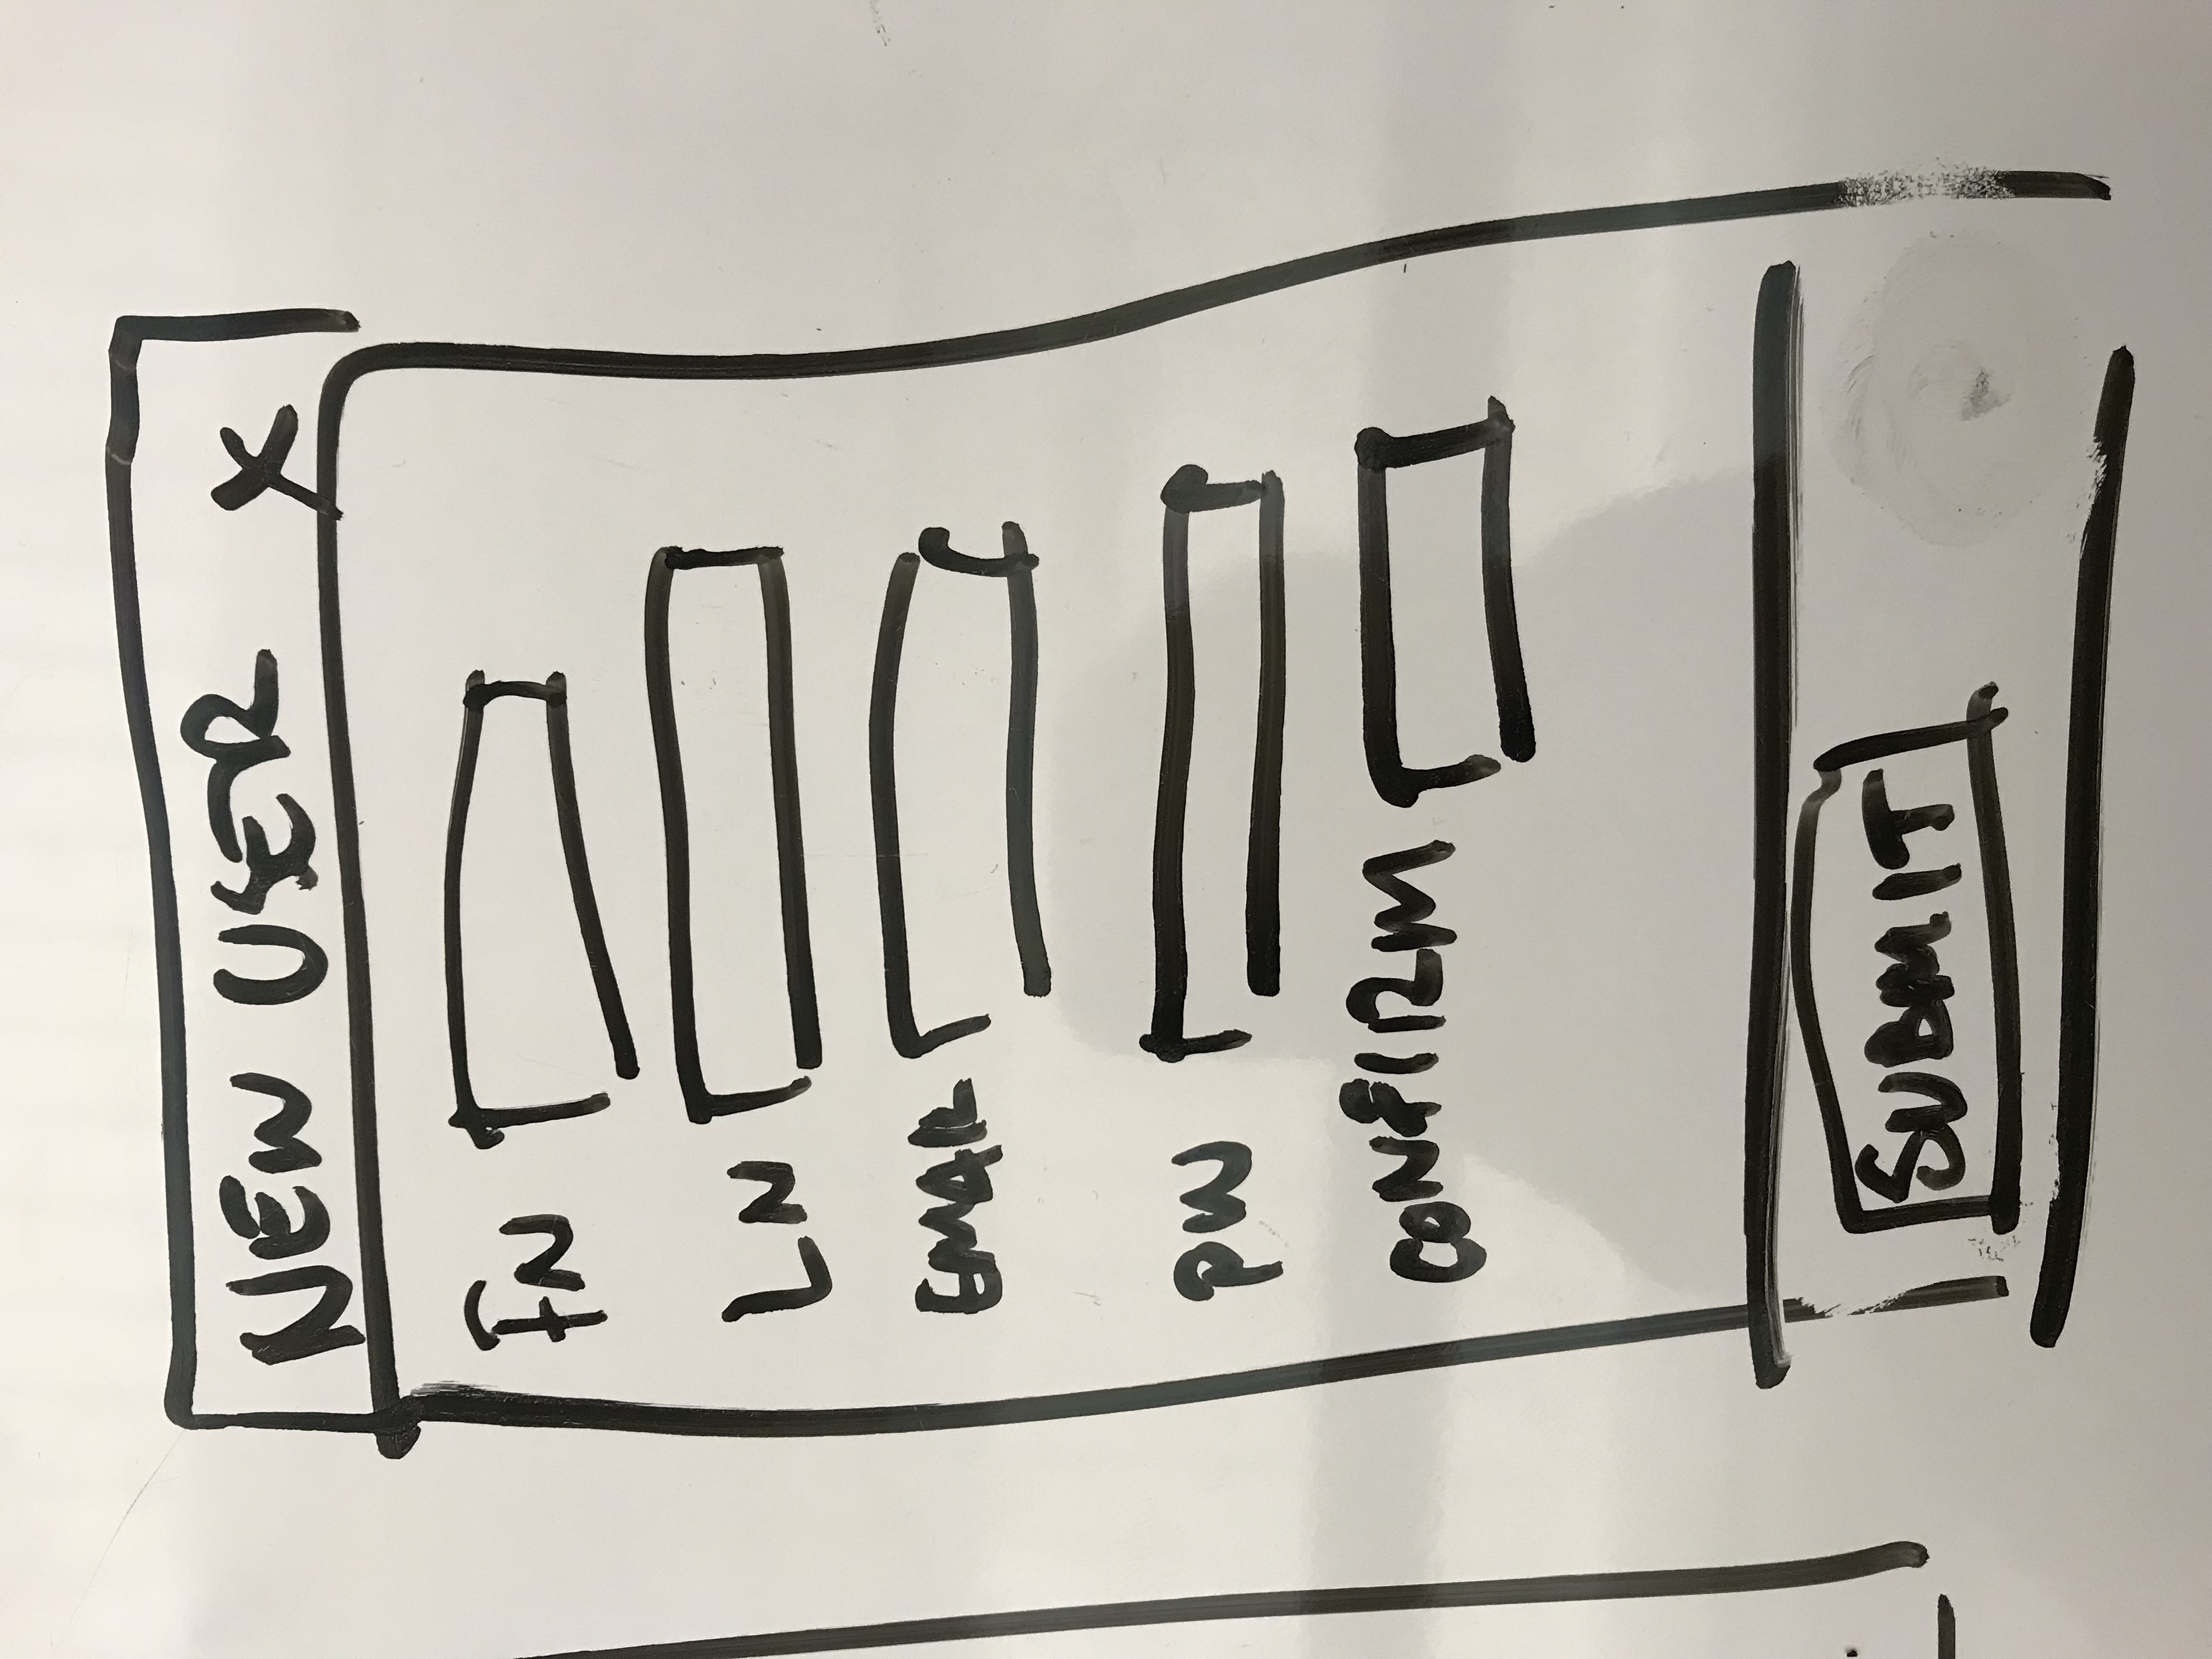 NEW USER X
FN
LN
EMAIL
PW
CONFIRM
SUBMIT